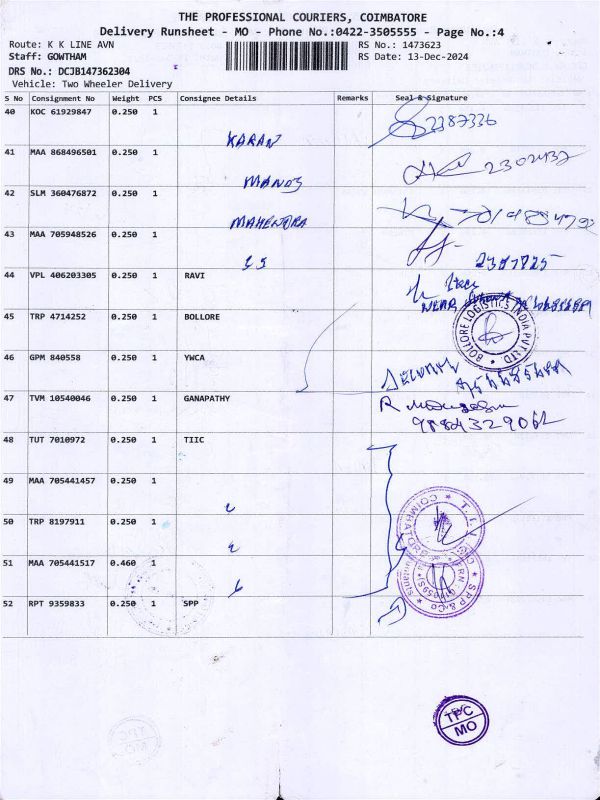 THE PROFESSIONAL COURIERS, COIMBATORE
Delivery Runsheet - MO - Phone No.:0422-3505555 - Page No.:4
Route: K K LINE AVN RS No.: 1473623
Staff: GOWTHAM RS Date: 13-Dec-2024
DRS No.: DCJB147362304
Vehicle: Two Wheeler Delivery
S No Consignment No Weight PCS Consignee Details Remarks Seal & Signature
40 KOC 61929847 0.250 1
KARAN 2387336
41 MAA 868496501 0.250 1
MANOJ 2302437
42 SLM 360476872 0.250 1
MAHENDRA
43 MAA 705948526 0.250 1
44 VPL 406203305 0.250 1 RAVI
45 TRP 4714252 0.250 1 BOLLORE
BOLLORE LOGISTICS INDIA PVT LTD
46 GPM 840558 0.250 1 YWCA
47 TVM 10540046 0.250 1 GANAPATHY
48 TUT 7010972 0.250 1 TIIC
49 MAA 705441457 0.250 1
50 TRP 8197911 0.250 1
51 MAA 705441517 0.460 1
52 RPT 9359833 0.250 1 SPP
SPP & Co
TPC
MO